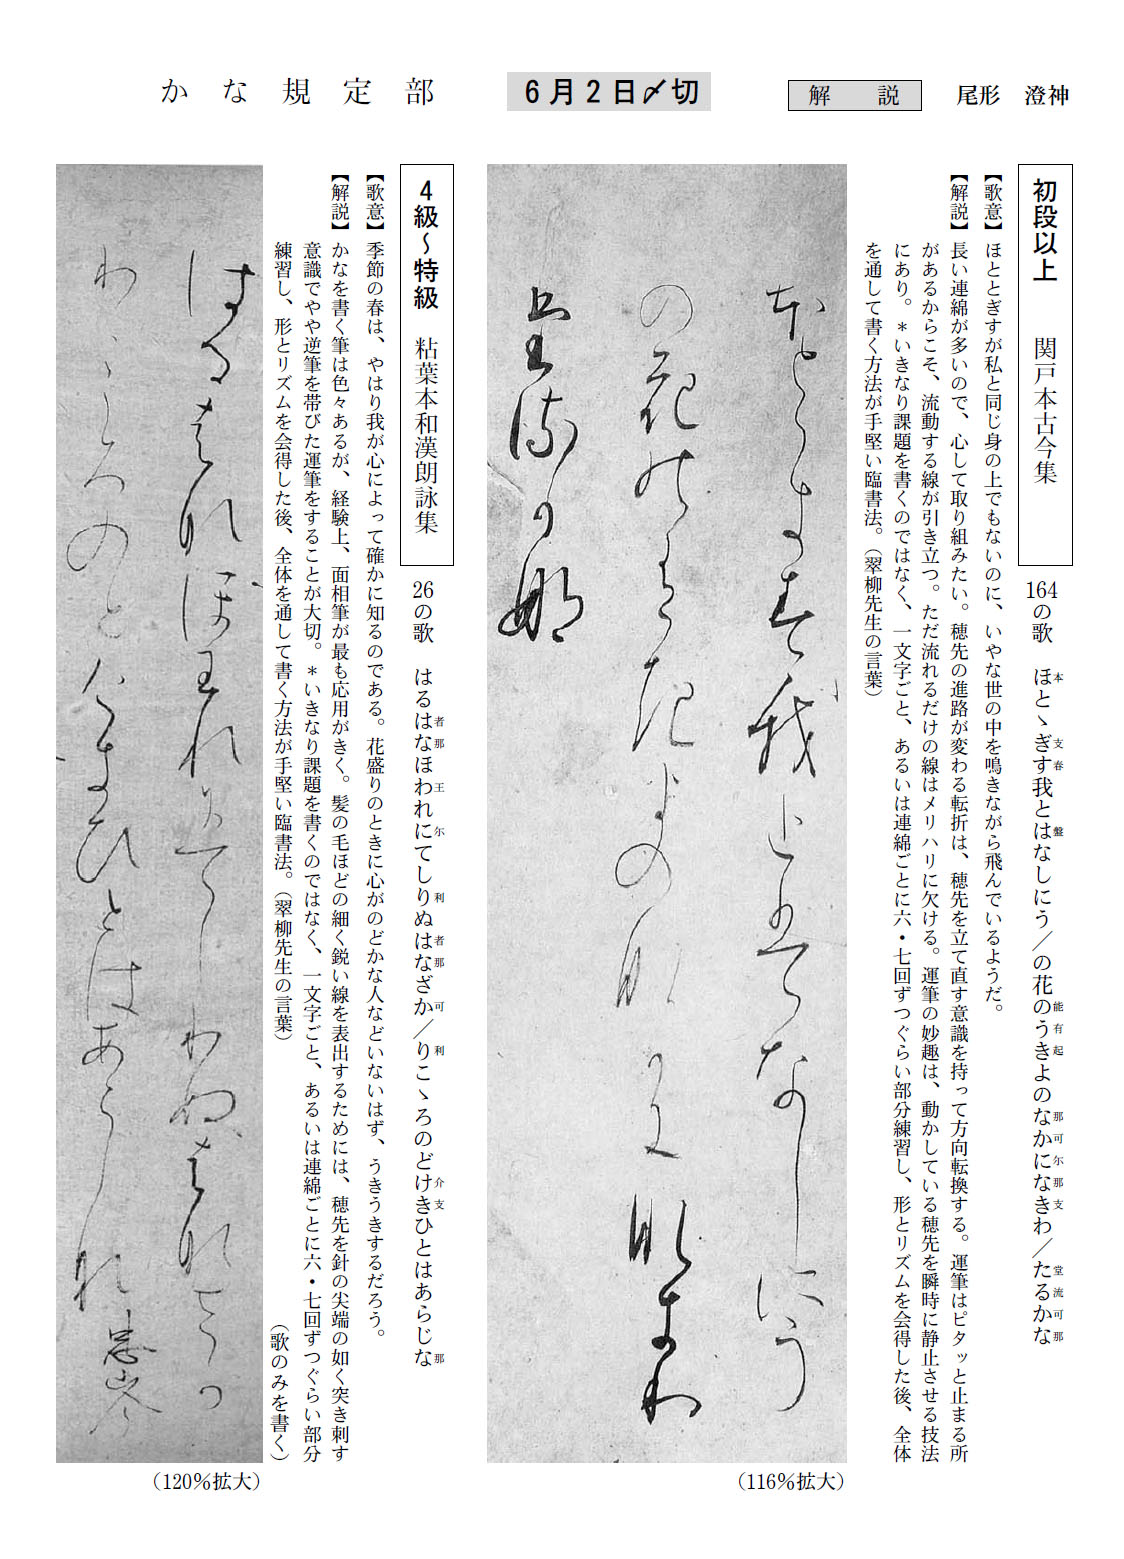 かな規定部
6月2日〆切
解説
尾形　澄神
初段以上　関戸本古今集
164の歌　ほとゝぎす我とはなしにう／の花のうきよのなかになきわ／たるかな
本　支春　盤　能有起　那可尓那支　堂流可那
【歌意】ほととぎすが私と同じ身の上でもないのに、いやな世の中を鳴きながら飛んでいるようだ。
【解説】長い連綿が多いので、心して取り組みたい。穂先の進路が変わる転折は、穂先を立て直す意識を持って方向転換する。運筆はピタッと止まる所
があるからこそ、流動する線が引き立つ。ただ流れるだけの線はメリハリに欠ける。運筆の妙趣は、動かしている穂先を瞬時に静止させる技法
にあり。＊いきなり課題を書くのではなく、一文字ごと、あるいは連綿ごとに六・七回ずつぐらい部分練習し、形とリズムを会得した後、全体
を通して書く方法が手堅い臨書法。（翠柳先生の言葉）
本とゝ支春我と盤なしにう
の花能有起よの那可尓那支わ
堂流可那
（116％拡大）
4級～特級　粘葉本和漢朗詠集
26の歌　はるはなほわれにてしりぬはなざか／りこゝろのどけきひとはあらじな
者那　王　尓　利　者那　可　利　介支　那
【歌意】季節の春は、やはり我が心によって確かに知るのである。花盛りのときに心がのどかな人などいないはず、うきうきするだろう。
【解説】かなを書く筆は色々あるが、経験上、面相筆が最も応用がきく。髪の毛ほどの細く鋭い線を表出するためには、穂先を針の尖端の如く突き刺す
意識でやや逆筆を帯びた運筆をすることが大切。＊いきなり課題を書くのではなく、一文字ごと、あるいは連綿ごとに六・七回ずつぐらい部分
練習し、形とリズムを会得した後、全体を通して書く方法が手堅い臨書法。（翠柳先生の言葉）
（歌のみを書く）
はる者那ほ王れ尓てし利ぬ者那さ可
利こゝろのと介支ひとはあらし那　忠岑
（120％拡大）